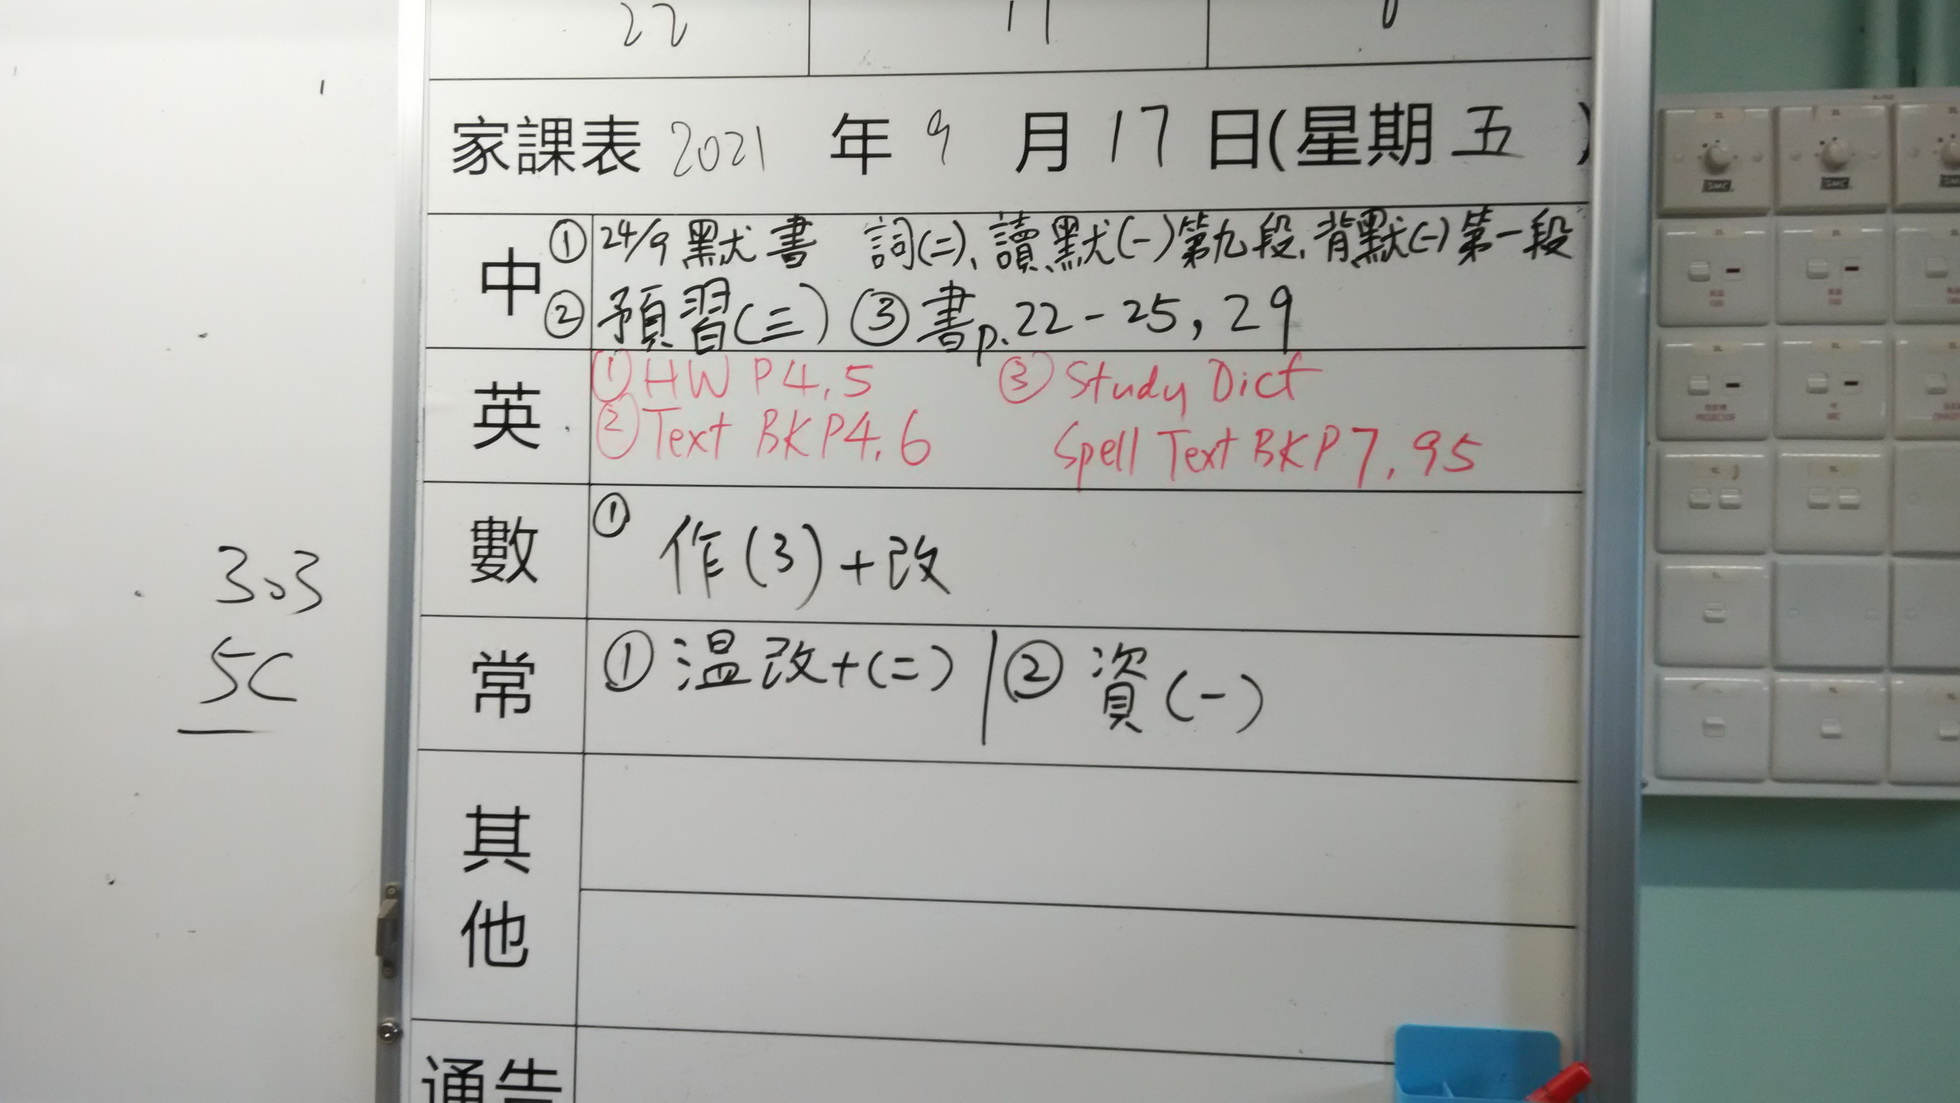 22 11
家課表 2021 年 9 月 17 日(星期 五 )
中 ① 24/9 默書 詞(二)、讀默(一)第九段,背默(一)第一段
② 預習(三) ③ 書p.22-25, 29
英 ① HW P4,5 ③ Study Dict
② Text BK P4,6 Spell Text BK P7,95
數 ① 作(3)+改
常 ① 温改+(二) | ② 資(一)
其他
通告
303
5C